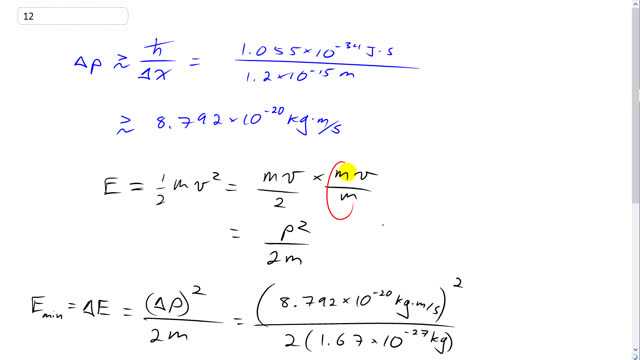 12
Δp ≳ ħ/Δx = 1.055×10⁻³⁴ J·s / 1.2×10⁻¹⁵ m
≳ 8.792×10⁻²⁰ kg·m/s
E = 1/2 mv² = mv/2 × mv/m
= p²/2m
E_min = ΔE = (Δp)²/2m = (8.792×10⁻²⁰ kg·m/s)² / 2(1.67×10⁻²⁷ kg)